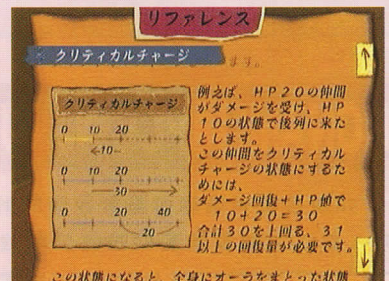 リファレンス
クリティカルチャージ
ます。
クリティカルチャージ
0 10 20
←10
0 10 20
30
0 20 40
20
例えば、HP20の仲間
がダメージを受け、HP
10の状態で後列に来た
とします。
この仲間をクリティカル
チャージの状態にするた
めには、
ダメージ回復+HP値で
10+20=30
合計30を上回る、31
以上の回復量が必要です。
この状態になると、全身にオーラをまとった状態